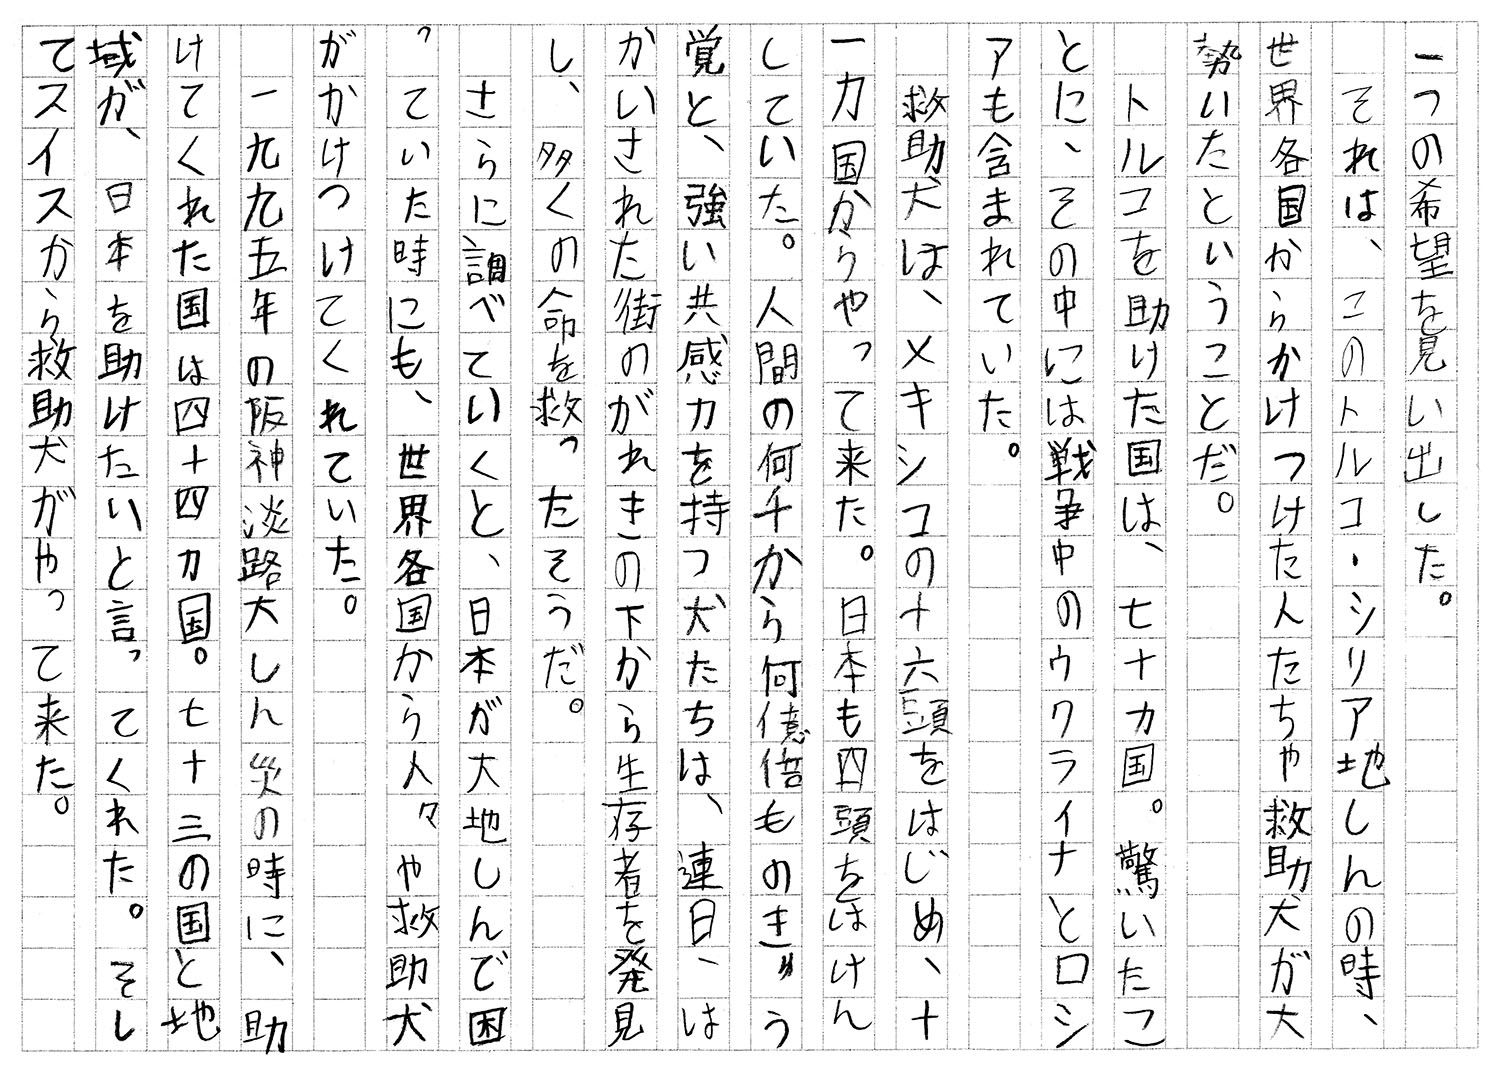 一つの希望を見い出した。
それは、このトルコ・シリア地しんの時、
世界各国からかけつけた人たちや救助犬が大
勢いたということだ。
トルコを助けた国は、七十カ国。驚いたこ
とに、その中には戦争中のウクライナとロシ
アも含まれていた。
救助犬は、メキシコの十六頭をはじめ、十
一カ国からやって来た。日本も四頭をはけん
していた。人間の何千から何億倍ものきゅう
覚と、強い共感力を持つ犬たちは、連日、は
かいされた街のがれきの下から生存者を発見
し、多くの命を救ったそうだ。
さらに調べていくと、日本が大地しんで困
っていた時にも、世界各国から人々や救助犬
がかけつけてくれていた。
一九九五年の阪神淡路大しん災の時に、助
けてくれた国は四十四カ国。七十三の国と地
域が、日本を助けたいと言ってくれた。そし
てスイスから救助犬がやって来た。